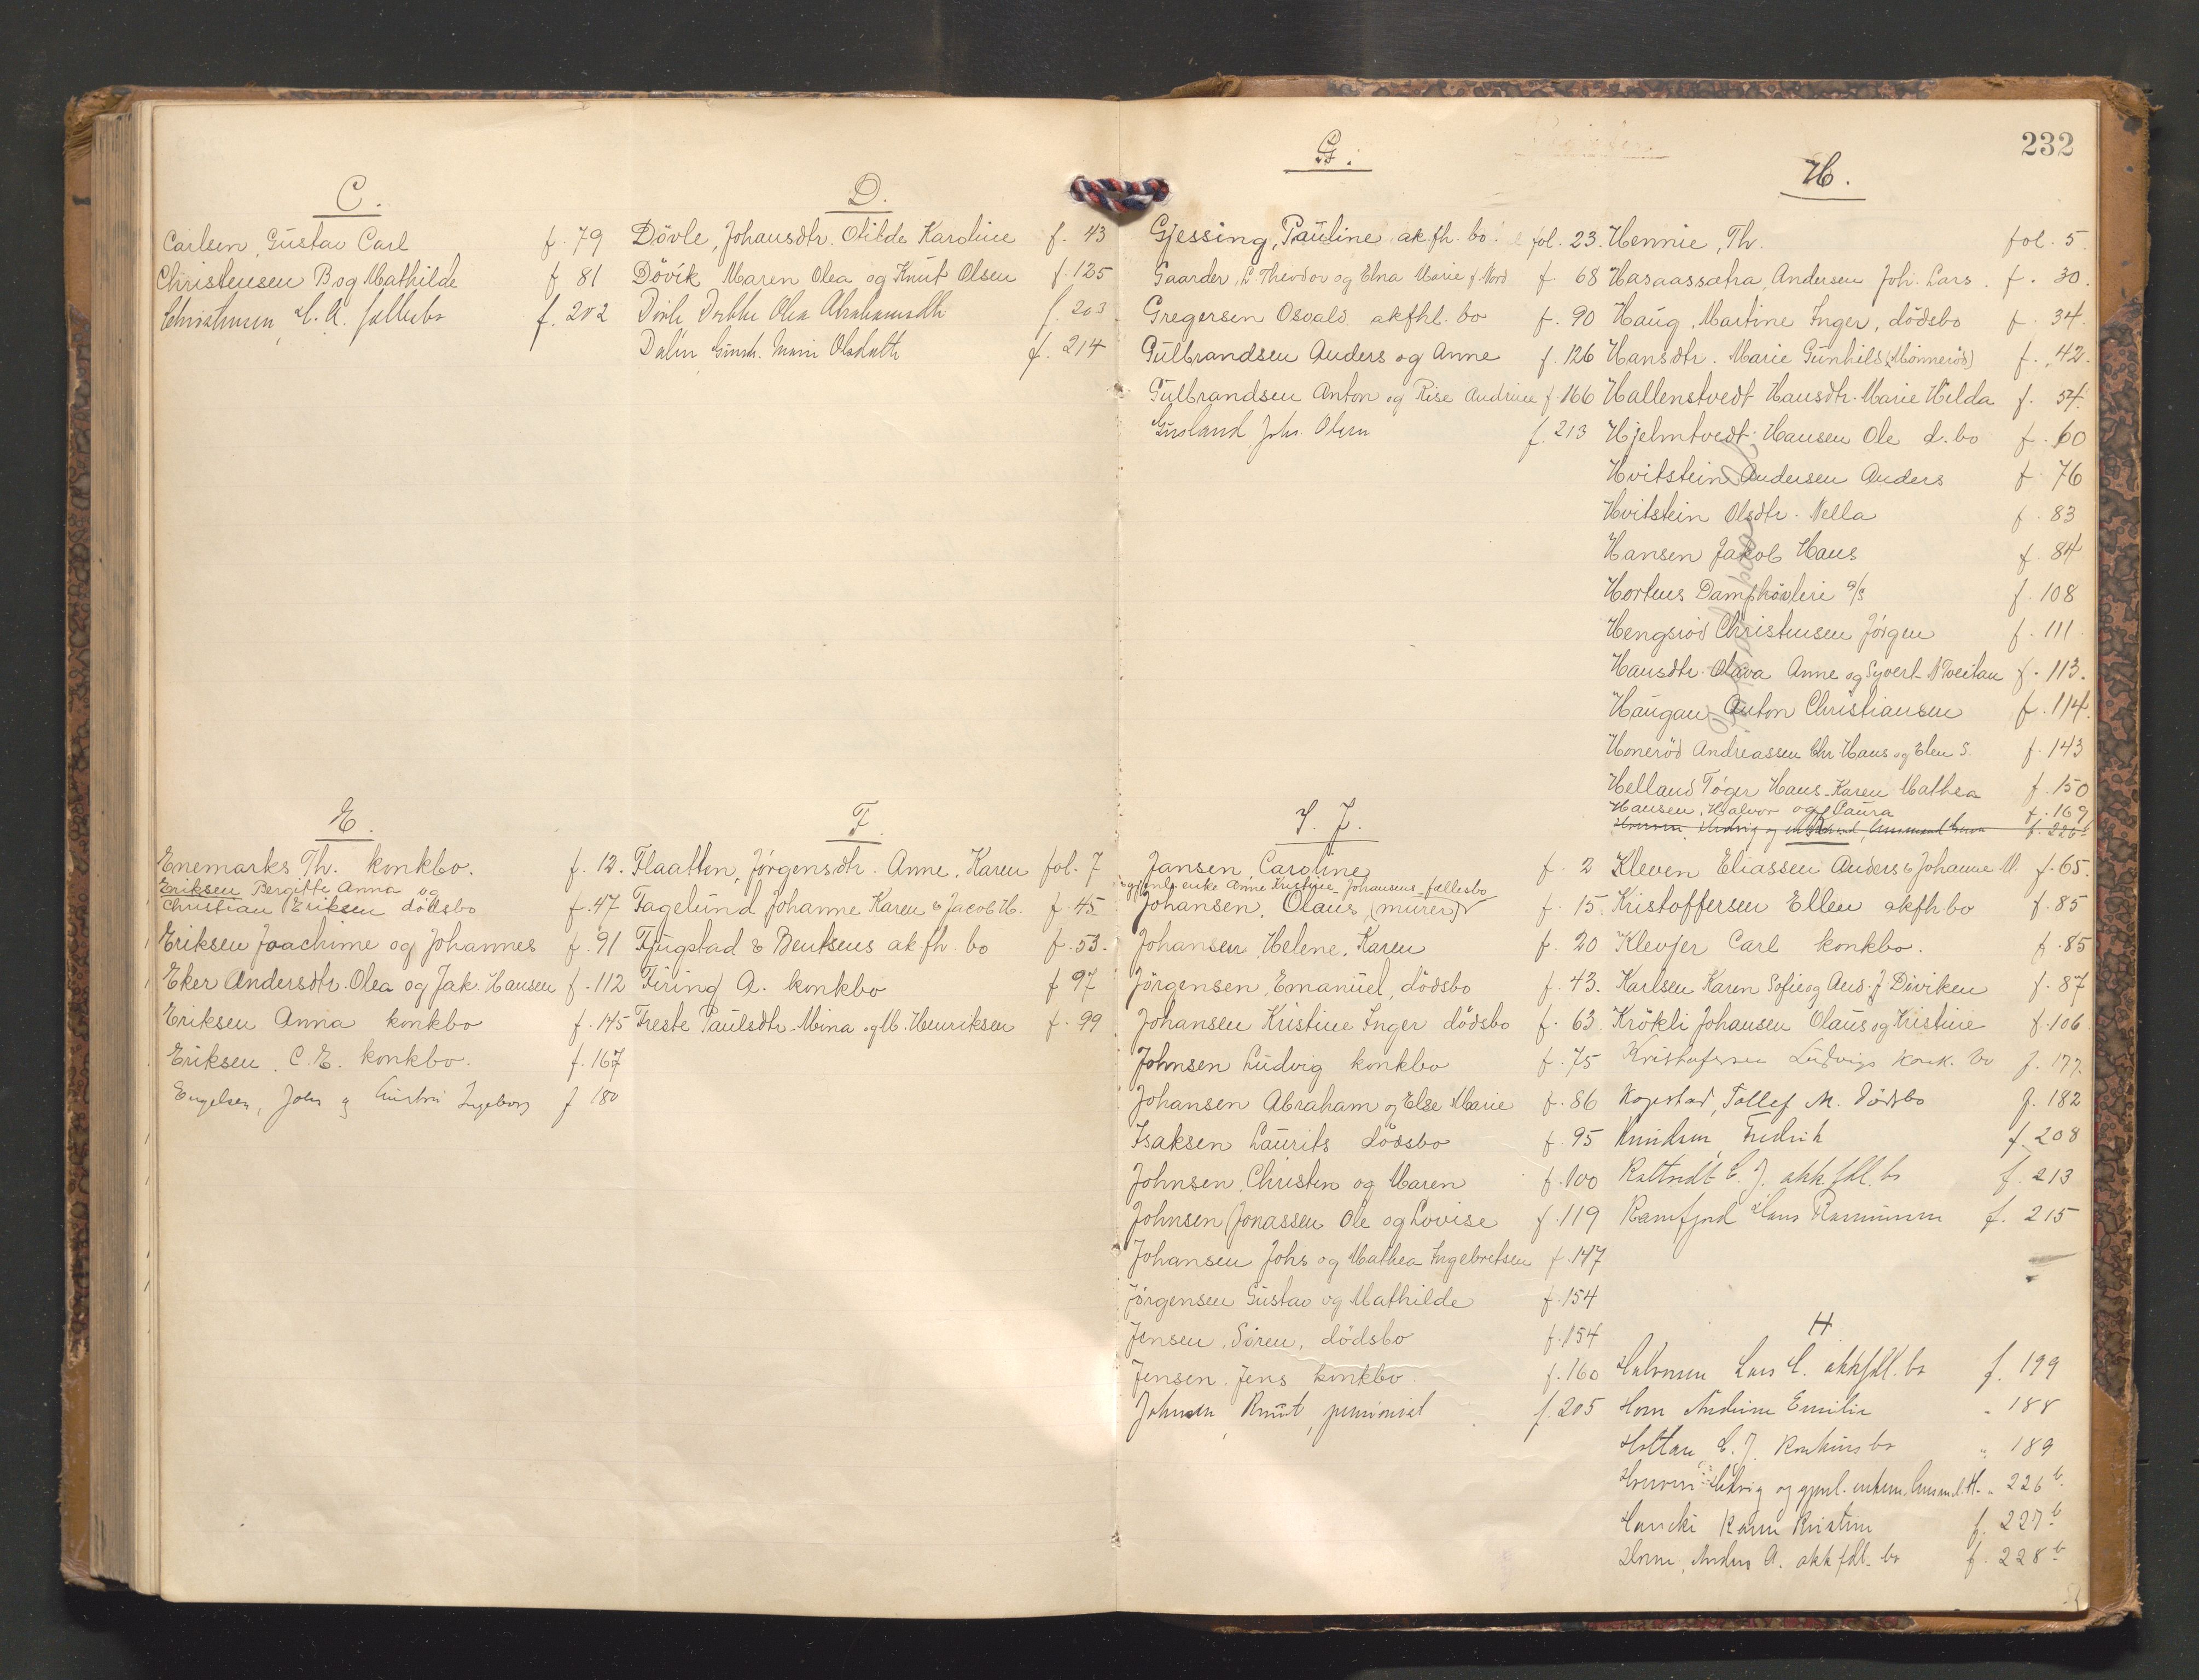 232
C.
Carlsen, Gustav Carl f. 79
Christensen B og Mathilde f 81
f. 202
D.
Dövle, Johansdtr. Otilde Karoline f. 43
Dövik Maren Olea og Knut Olsen f. 125
Dövle Dorthe Olea Abrahamsdtr f. 203
Dalen Marie Olsdatter f. 214
E.
Enemarks Th. konkbo. f. 12.
Eriksen Bergitte Anna og
Christian Eriksen dödsbo f. 47
Eriksen Joachime og Johannes f. 91
Eker Andersdtr. Olea og Jak. Hansen f. 112
Eriksen Anna konkbo f. 145
Eriksen, C. E. konkbo. f. 167
Engelsen, John g Ingeborg f 180
F.
Flaatten, Jörgensdtr. Anne, Karen fol. 7
Fagelund Johanne Karen & Jacob H. f. 45
Fjugstad & Bentsens akfh. bo f. 53.
Firing A. konkbo f 97
Freste Paulsdtr. Mina og M. Henriksen f. 99
G.
Gjessing, Pauline akfh. bo. fol. 23.
Gaarder, L Theodor og Elna Marie f. Nord f. 68
Gregersen Osvald akfhl. bo f. 90
Gulbrandsen Anders og Anne f. 126
Gulbrandsen Anton og Rise Andrine f. 166
Gusland Johs. Olsen f. 213
H.
Hennie, Th. fol. 5
Hasaassætra, Andersen Joh. Lars. f. 30.
Haug, Martine Inger, dödsbo f. 34
Hansdtr. Marie Gunhild (Mönneröd) f. 42.
Hallenstvedt Hansdtr. Marie Hilda f. 54.
Hjelmtvedt Hansen Ole d. bo f. 60
Hvitstein Andersen Anders f 76
Hvitstein Olsdtr. Nella f. 83
Hansen Jakob Hans f. 84
Hortens Damphövleri a/s f. 108
Hengsröd Christensen Jörgen f. 111
Hansdtr. Olava Anne og Syvert N Tveitan f. 113.
Haugan Anton Christiansen f. 114.
Honeröd Andreassen Chr. Hans og Elen S. f. 143
Helland Töger Hans Karen Mathea f. 150
Hansen, Halvor og Laura f. 169
f. 226 b
I. J.
Jansen, Caroline f. 2
og enke Anne Kristine Johansens fællesbo
Johansen, Olaus, (murer) f. 15.
Johansen, Helene, Karen f. 20
Jörgensen, Emanuel, dödsbo f. 43.
Johansen Kristine Inger dödsbo f. 63
Johnsen Ludvig konkbo f. 75
Johansen Abraham og Else Marie f. 86
Isaksen Laurits dödsbo f. 95
Johnsen, Christen og Maren f. 100
Johnsen (Jonassen Ole og Lovise f. 119
Johansen Johs og Mathea Ingebretsen f. 147
Jörgensen Gustav og Mathilde f. 154
Jensen, Sören, dödsbo f. 154
Jensen. Jens konkbo. f. 160
Johnsen, Knut, pensionist f. 205
Kleven Eliassen Anders & Johanne M. f. 65.
Kristoffersen Ellen akfh bo f. 85
Klevjer Carl konkbo. f. 85
Karlsen Karen Sofie og And. J Diviken f. 87
Krökli Johansen Olaus og Kristine f. 106
Kristofersen Ludvigs konk. bo f. 177.
Kopstad, Tollef M. dödsbo f. 182
Knudsen, Fredrik f. 208
C. J. akk fdl. bo f. 213
Hans Rasmussen f. 215
H
Halvorsen Lars akkfdl. bo f. 199
Horn Andrine Emilie " 188
Holtan C. J. Konkurs bo " 189
Hedvig og gjenl. " 226 b
Karen Kristine f. 227 b
Anders A. akk fdl. bo f. 228 b